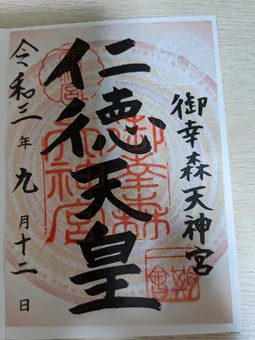 御幸森天神宮
仁徳天皇
令和三年九月十二日
御幸森
天神宮